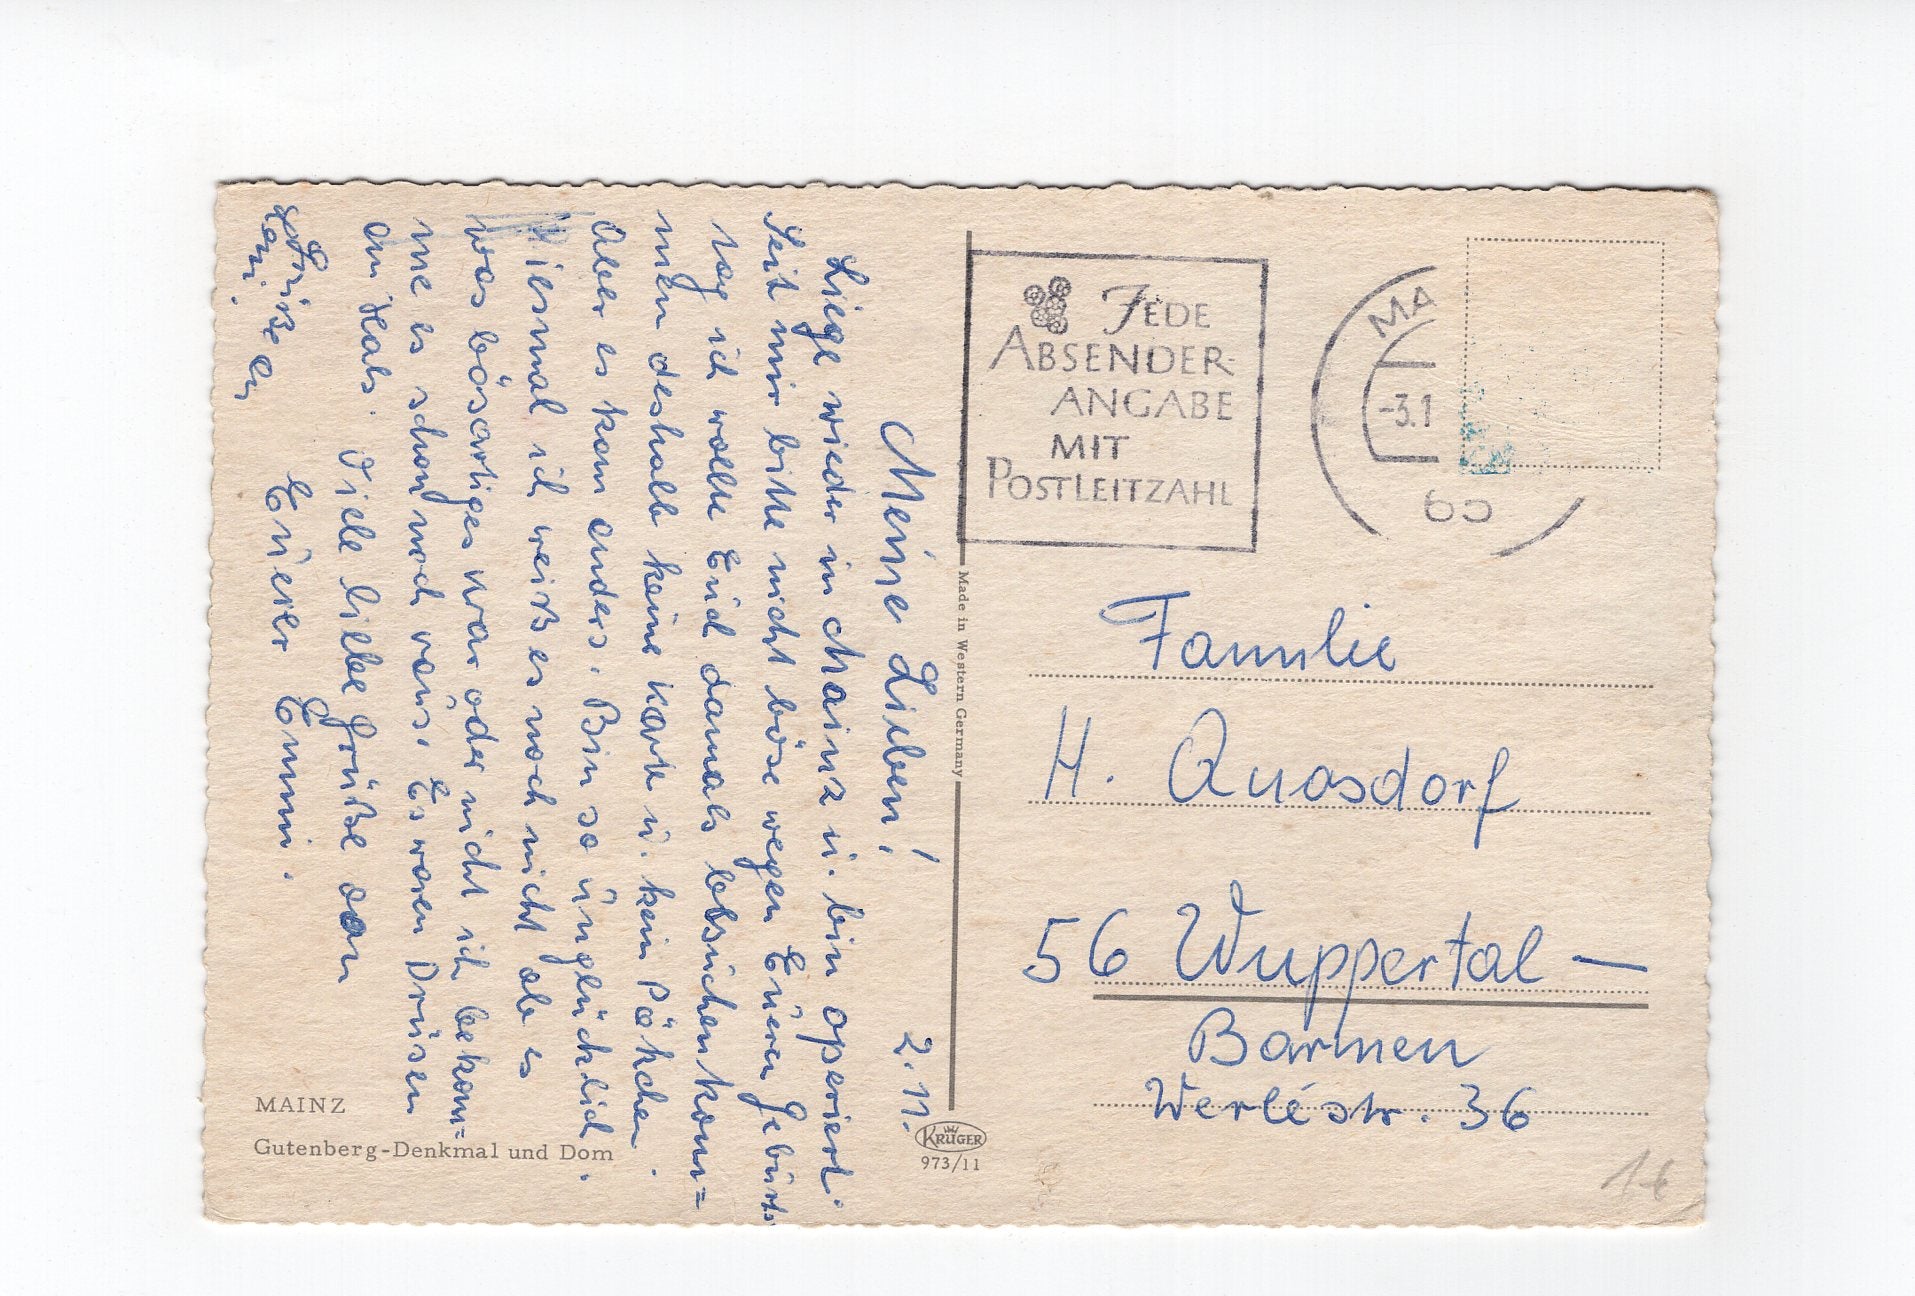 2.11.
Meine Lieben!
Liege wieder in Mainz u. bin operiert.
Seid mir bitte nicht böse wegen Eueren Geburts
tag ich wollte Euch damals besuchen kom=
men deshalb keine Karte u. kein Päkchen.
Aber es kam anders. Bin so unglücklich.
Diesmal ich weiß es noch nicht ob es
was bösartiges war oder nicht ich bekom=
me es schon noch raus. Es waren Drüsen
am Hals. Viele liebe Grüße von
Euerer Emmi.
Grüße an
MAINZ
Gutenberg-Denkmal und Dom
Made in Western Germany
KRÜGER
973/11
JEDE
ABSENDER-
ANGABE
MIT
POSTLEITZAHL
MA
-3.1
Familie
H. Quasdorf
56 Wuppertal —
Barmen
Werléstr. 36